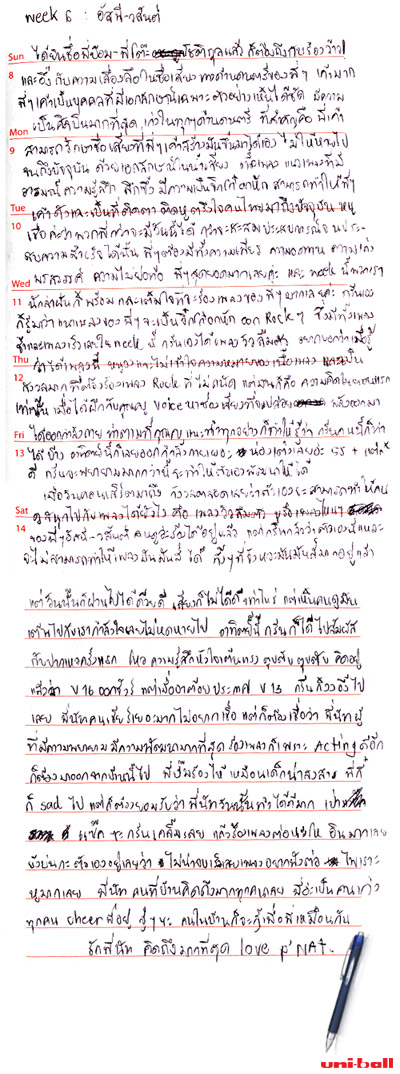 week 6 : อัสนี-วสันต์
Sun ได้ยินชื่อพี่ป้อม-พี่โต๊ะ
8 และอึ้ง กับความเลื่องลือในชื่อเสียงทางด้านดนตรีของพี่ๆ เค้ามาก
พี่ๆ เค้าเป็นบุคคลที่มีเอกลักษณ์เฉพาะตัวอย่างเห็นได้ชัด มีความ
Mon เป็นศิลปินมากที่สุด เก่งในทุกๆด้านดนตรี ที่สำคัญคือ พี่เค้า
9 สามารถรักษาชื่อเสียงที่พี่ๆเค้าสร้างมันขึ้นมาได้เอง ไม่ให้หายไป
จนถึงปัจจุบัน ด้วยเอกลักษณ์ในน้ำเสียง
อารมณ์ ความรู้สึก ลึกซึ้ง มีความเป็นร็อก สามารถทำให้พี่ๆ
Tue เค้าดังและเป็นที่ติดตา ติดหูตรึงใจคนไทยมาถึงปัจจุบัน หนู
10 เชื่อค่ะว่าพวกพี่กว่าจะมีวันนี้ได้ กว่าจะสะสมประสบการณ์จนประ
สบความสำเร็จได้นั้น พี่ๆต้องมีทั้งความเพียร ความอดทน ความเก่ง
พรสวรรค์ ความไม่ย่อท้อ พี่ๆสุดยอดมากเลยค่ะ และ week นี้พวกเรา
Wed
11 นักล่าฝันก็พร้อมและเต็มใจที่จะร้องเพลงของพี่ๆมากเลยค่ะ กรีนเอง
ก็รู้มาว่าแนวเพลงของพี่ๆจะเป็น ออก Rock ๆ ซึ่งมีทั้งเพลง
ช้าและเพลงเร็วและใน week นี้ กรีนเองได้เพลง วัวลืมตัว
Thu ว่าได้เพลงนี้ และไม่เข้าใจความหมายของเนื้อเพลง และเป็น
12 ร้องเพลง Rock ที่ไม่ถนัด
เท่านั้น เมื่อได้ฝึกกับคุณครู voice หาช่องเสียงที่จะปล่อย พลังออกมา
Fri ได้ออกกำลังกาย ทำตามที่คุณครูแนะนำทุกอย่างก็ทำให้รู้ว่า กรีนคนนี้ก็ว่า
13 ได้ อาทิตย์นี้ก็เลยออกกำลังกายเยอะ
ดี กรีนจะพยายามมากกว่านี้จะทำให้ตัวเองพัฒนาให้ได้
ว่าตัวเองจะสามารถทำให้คน
Sat ดูสนุกไปกับเพลงได้ยังไง คือ เพลงวัวลืมตัว
14 ของพี่ๆอัสนี-วสันต์ คนดูจะร้องได้อยู่แล้ว แต่กรีนกลัวว่าตัวเองนี่แหละ
จะไม่สามารถทำให้เพลงมันมันส์ได้ ทั้งๆที่จังหวะมันมันส์มากอยู่แล้ว
แต่วันนั้นก็ผ่านไปได้ด้วยดี เสียงก็ไม่ได้ดีเท่าไหร่ แต่เห็นคนดูมัน
เต้นไปกับเรากำลังใจเลยไม่หดหายไป อาทิตย์นี้ กรีนก็ได้ไปสัมผัส
กับปากเหวครั้งแรก โหว ความรู้สึกหัวใจเต้นแรง ตุบตับ ตุบตับ คิดอยู่
แล้วว่า V16 ออกชัวร์ แต่เมื่ออาต้อยประกาศ V13 กรีนก็งงอึ้งไป
เลย พี่นัทคนเชียร์เยอะมากไม่อยากเชื่อ แต่ก็ต้องเชื่อว่า พี่นัทผู้
ที่มีความพยายาม มีความพัฒนามากที่สุด ร้องเพลงก็เพราะ Acting ดีอีก
ก็ต้องมาออกจากบ้านนี้ไป พี่ ร้องไห้เหมือนเด็กน่าสงสาร พี่กี้
ก็ sad ไป แต่ก็ต้องยอมรับว่า พี่นัทวันนั้นทำได้ดีมาก
กรีนเคลิ้มเลย แล้วร้องเพลงต่อน้ำให้ อินมากเลย
ยังบ่นกะตัวเองอยู่เลยว่า ไม่น่าจบเร็วเลยเพลงอยากฟังต่อ ไพเราะ
หูมากเลย พี่นัท คนที่บ้านคิดถึงมากทุกคนเลย พี่อ่ะเป็นคนเก่ง
ทุกคน cheer พี่อยู่ สู้ๆนะ คนในบ้านก็จะสู้เพื่อพี่เหมือนกัน
รักพี่นัท คิดถึงมากที่สุด love P'NAT.
uni-ball